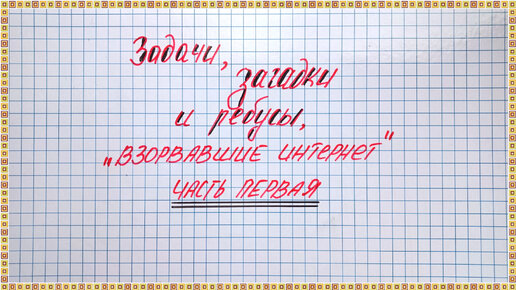 Задачи,
загадки
и ребусы,
„ВЗОРВАВШИЕ ИНТЕРНЕТ"
ЧАСТЬ ПЕРВАЯ